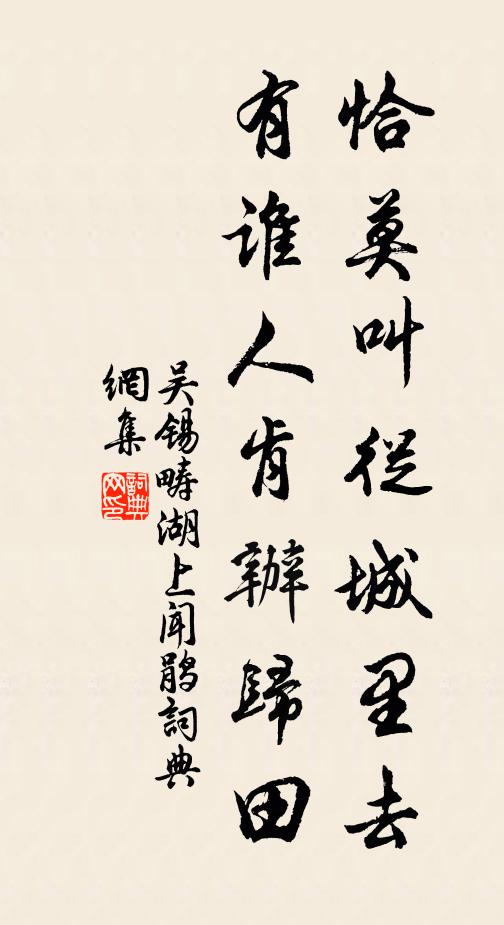 恰莫叫從城里去
有誰人肯辦歸田
吴錫畴湖上闻鹃詞典
網集
詞典
网印